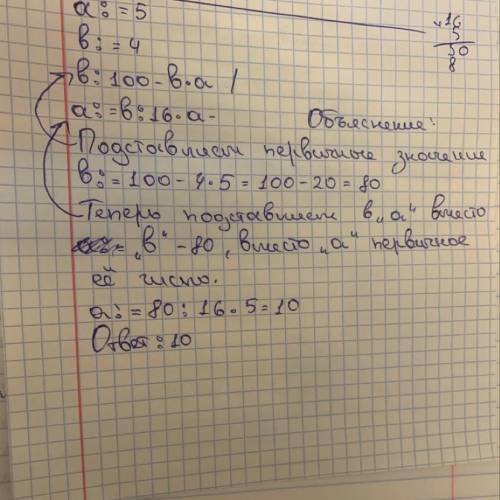 a:=5
в:=4
в: 100-в·a /
a:=в:16·a-
Объяснение:
Подставляем первичные значение
в:=100-4·5=100-20=80
Теперь подставляем в „a“ вместо
„в“-80, вместо „a“ первичное
её число.
a:=80:16·5=10
Ответ:10
16
5
30
8